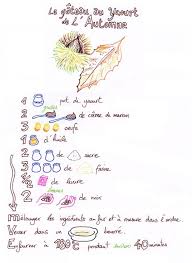 Le gâteau au Yaourt
de l'Automne
1 pot de yaourt
2 de crème de marron
3 oeufs
1 d'huile
2 de sucre
3 de farine
1/2 de levure
2 de noix
Mélanger les ingrédients au fur et à mesure dans l'ordre.
Verser dans un beurré.
Enfourner à 180°C pendant environ 40 minutes